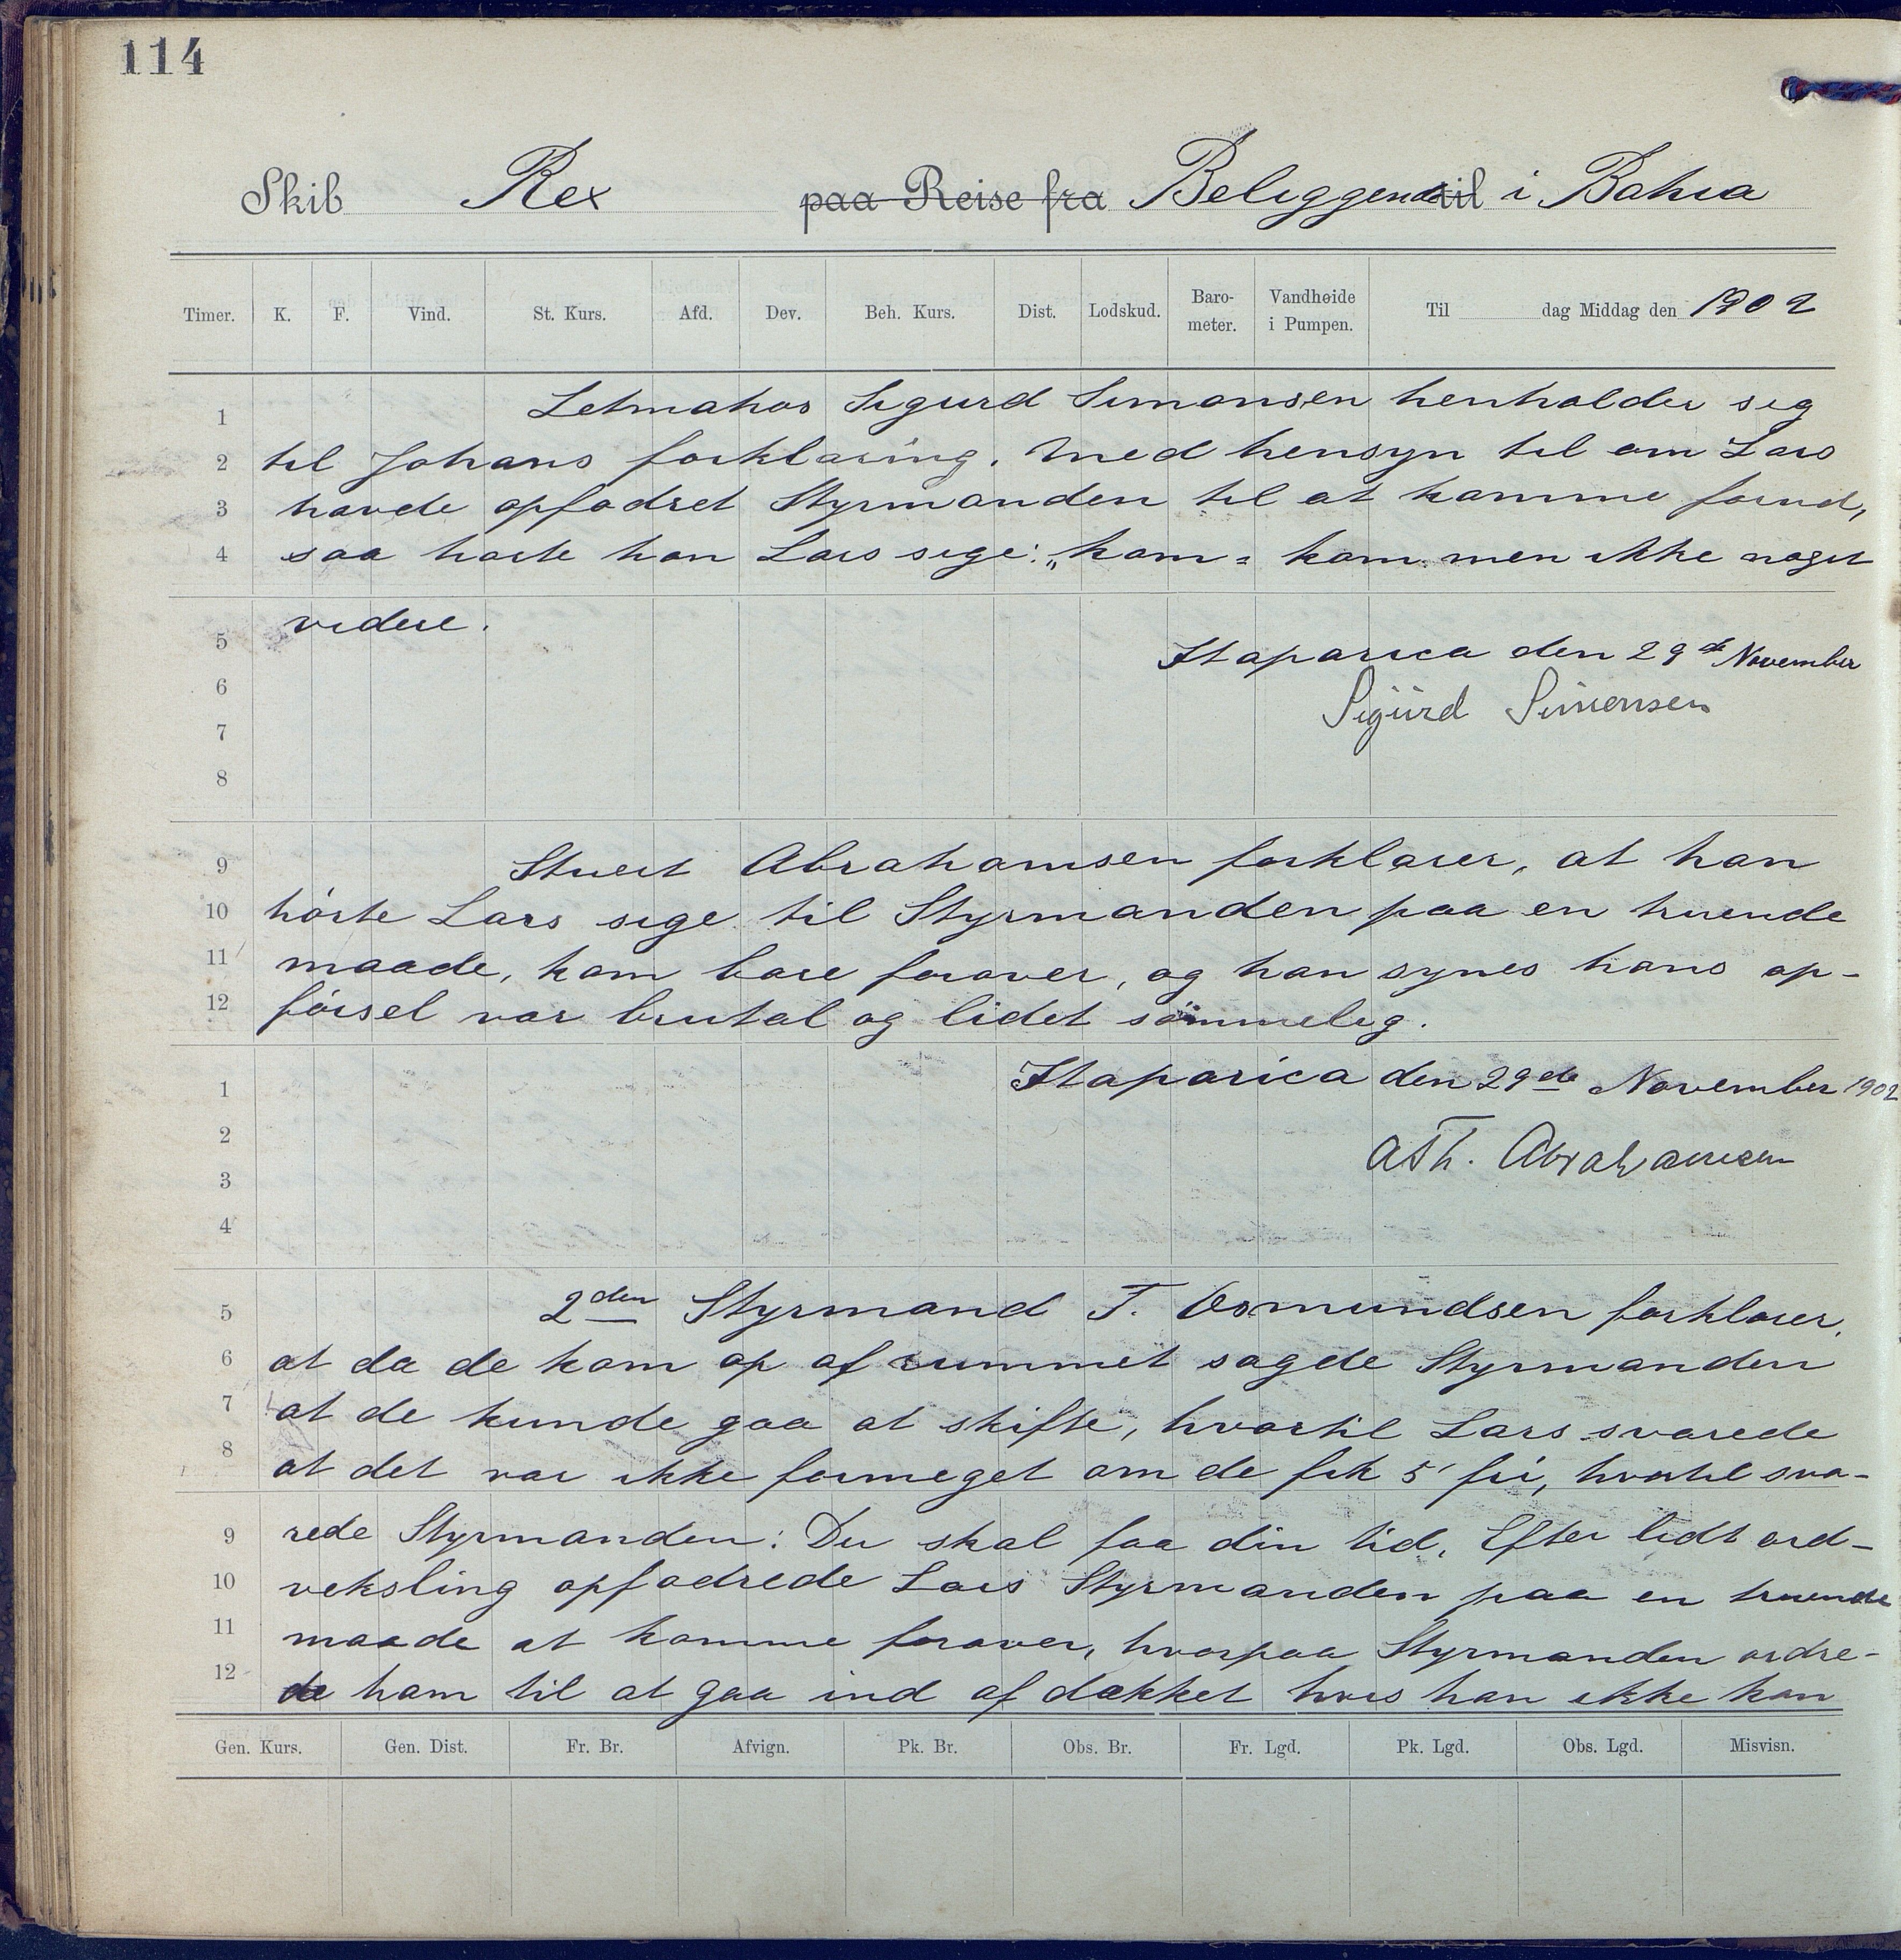 114
Skib Rex paa Reise fra Beliggende til i Bahia
Timer. K. F. Vind. St. Kurs. Afd. Dev. Beh. Kurs. Dist. Lodskud. Baro-meter. Vandhøide i Pumpen. Til dag Middag den 1902
1 Letmatros Sigurd Simonsen henholder sig
2 til Johans forklaring. Med hensyn til om Lars
3 havde opfodret Styrmanden til at komme forud,
4 saa hørte han Lars sige: „kom = kom. men ikke noget
5 videre.
Itaparica den 29de November
6 Sigurd Simensen
7
8
9 Stuert Abrahamsen forklarer, at han
10 hørte Lars sige til Styrmanden paa en truende
11 maade, kom bare forover, og han synes hans op-
12 førsel var brutal og lidet sømmelig.
1 Itaparica den 29de November 1902
2 A Th. Abrahamsen
3
4
5 2den Styrmand T. Osmundsen forklarer,
6 at da de kom op af rummet sagde Styrmanden
7 at de kunde gaa at skifte, hvortil Lars svarede
8 at det var ikke formeget om de fik 5' fri, hvortil sva-
9 rede Styrmanden: Du skal faa din tid. Efter lidt ord-
10 veksling opfodrede Lars Styrmanden paa en truende
11 maade at komme forover, hvorpaa Styrmanden ordre-
12 de ham til at gaa ind af dækket hvis han ikke kan
Gen. Kurs. Gen. Dist. Fr. Br. Afvign. Pk. Br. Obs. Br. Fr. Lgd. Pk. Lgd. Obs. Lgd. Misvisn.